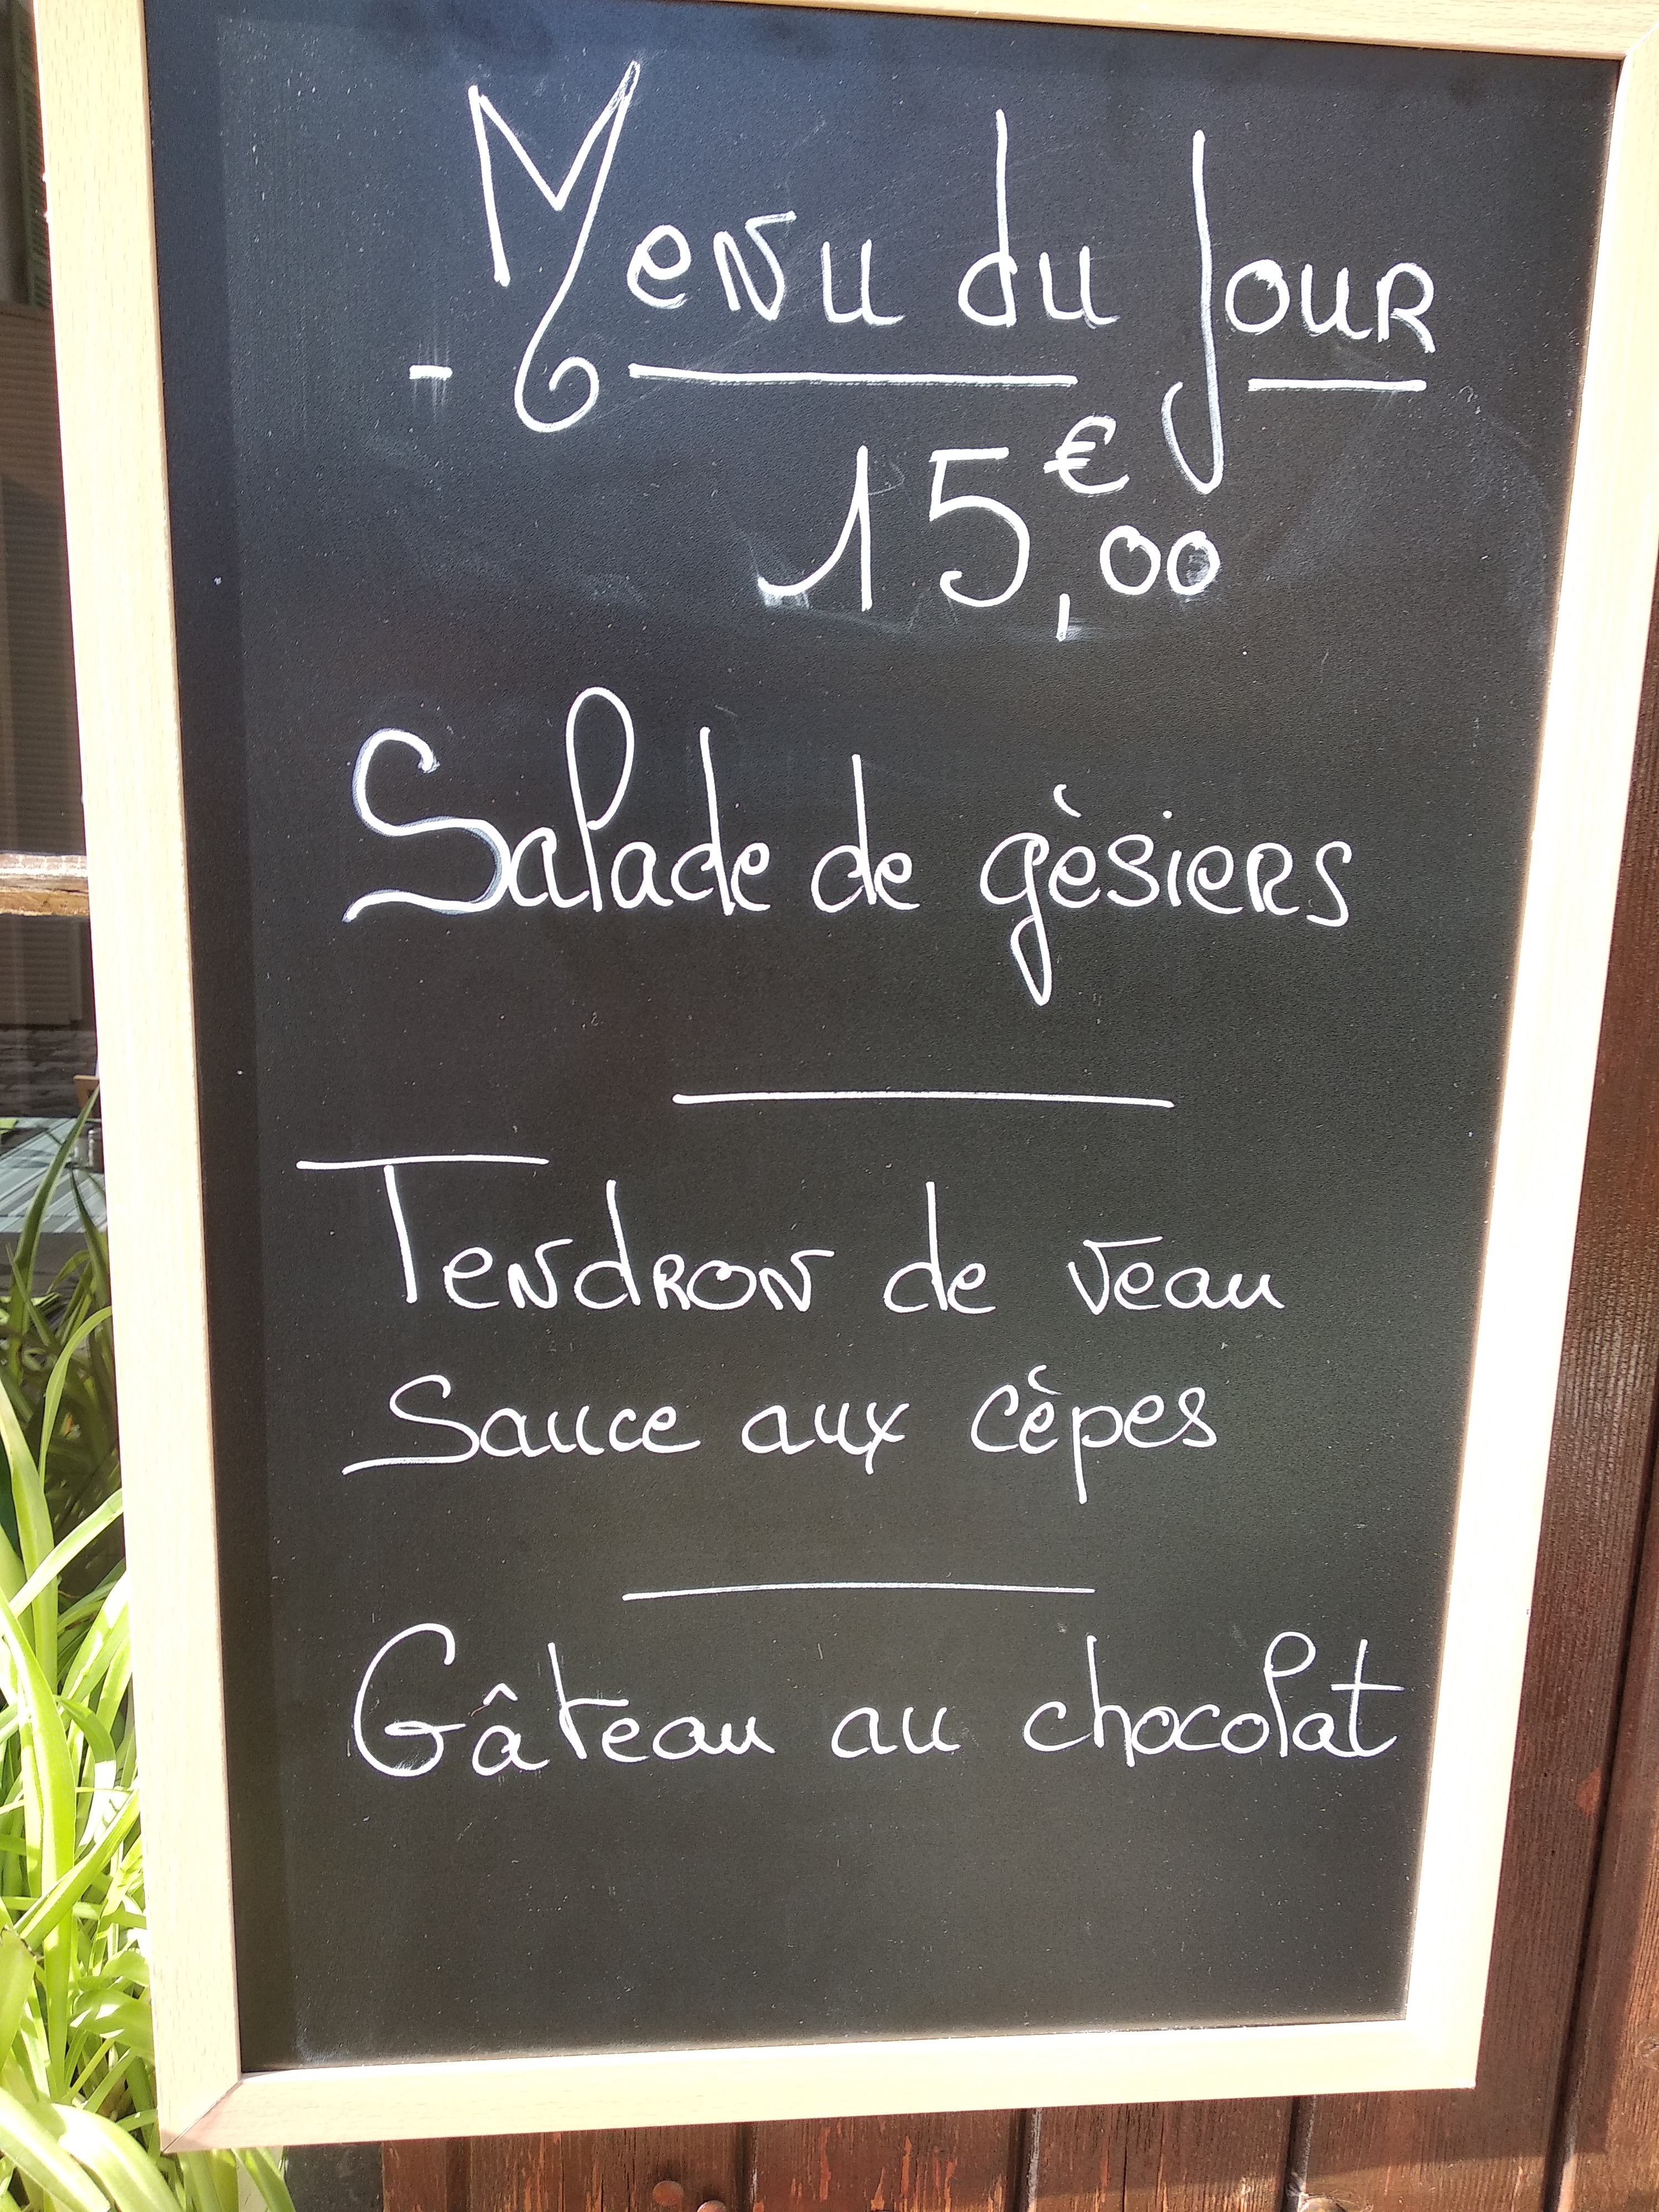 Menu du Jour
15,€00
Salade de gèsiers
Tendron de veau
Sauce aux cèpes
Gâteau au chocolat